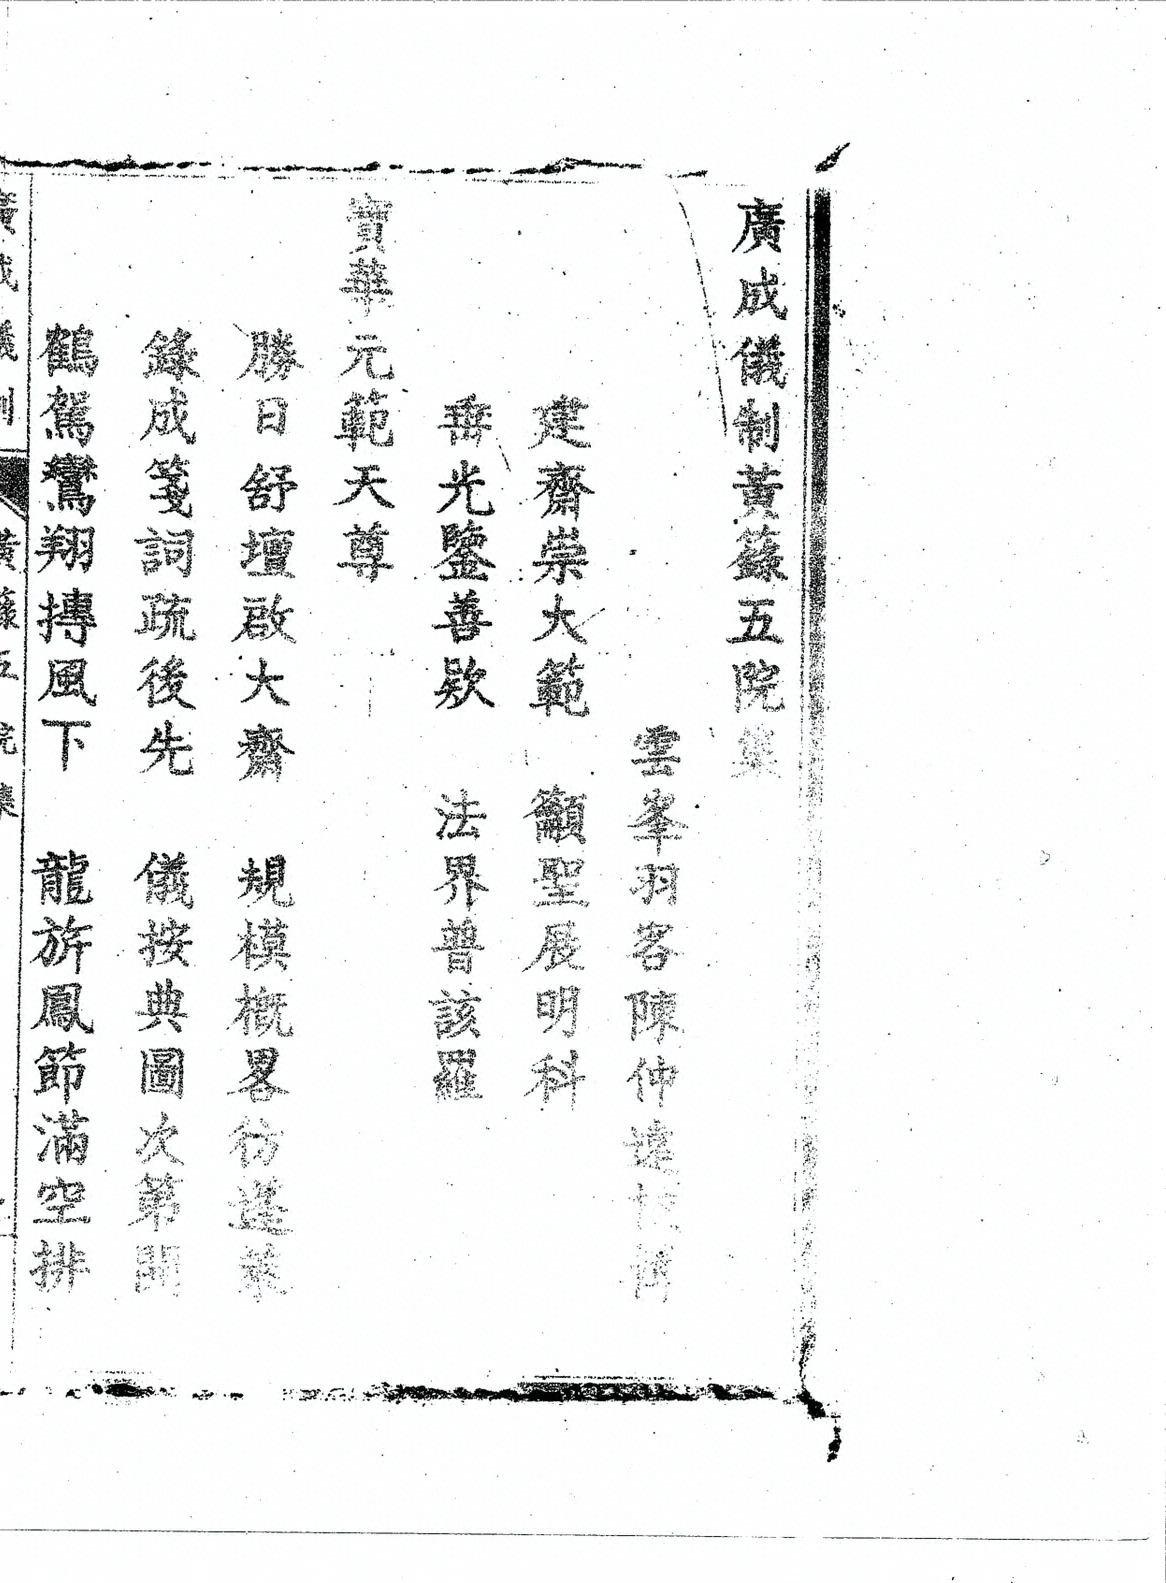 廣成儀制黃籙五院集
雲峯羽客陳仲遠校輯
建齋崇大範　籲聖展明科
垂光鑒善欵　法界普該羅
寶華元範天尊
勝日舒壇啟大齋　規模概畧彷蓬萊
錄成箋詞疏後先　儀按典圖次第開
鶴駕鸞翔摶風下　龍旂鳳節滿空排
廣成儀制　黃籙五院集